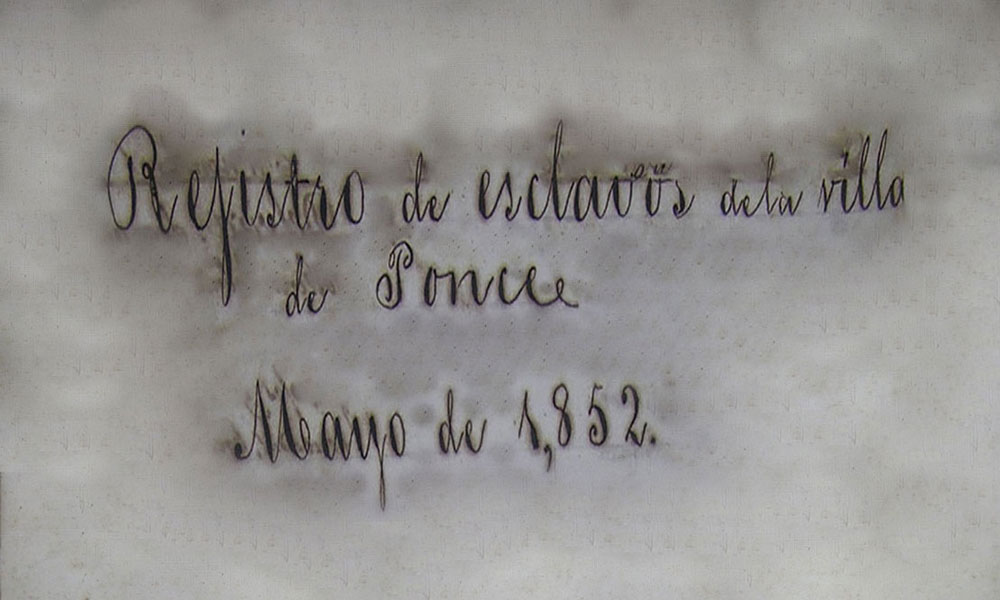 Rejistro de esclavos de la villa
de Ponce
Mayo de 1,852.